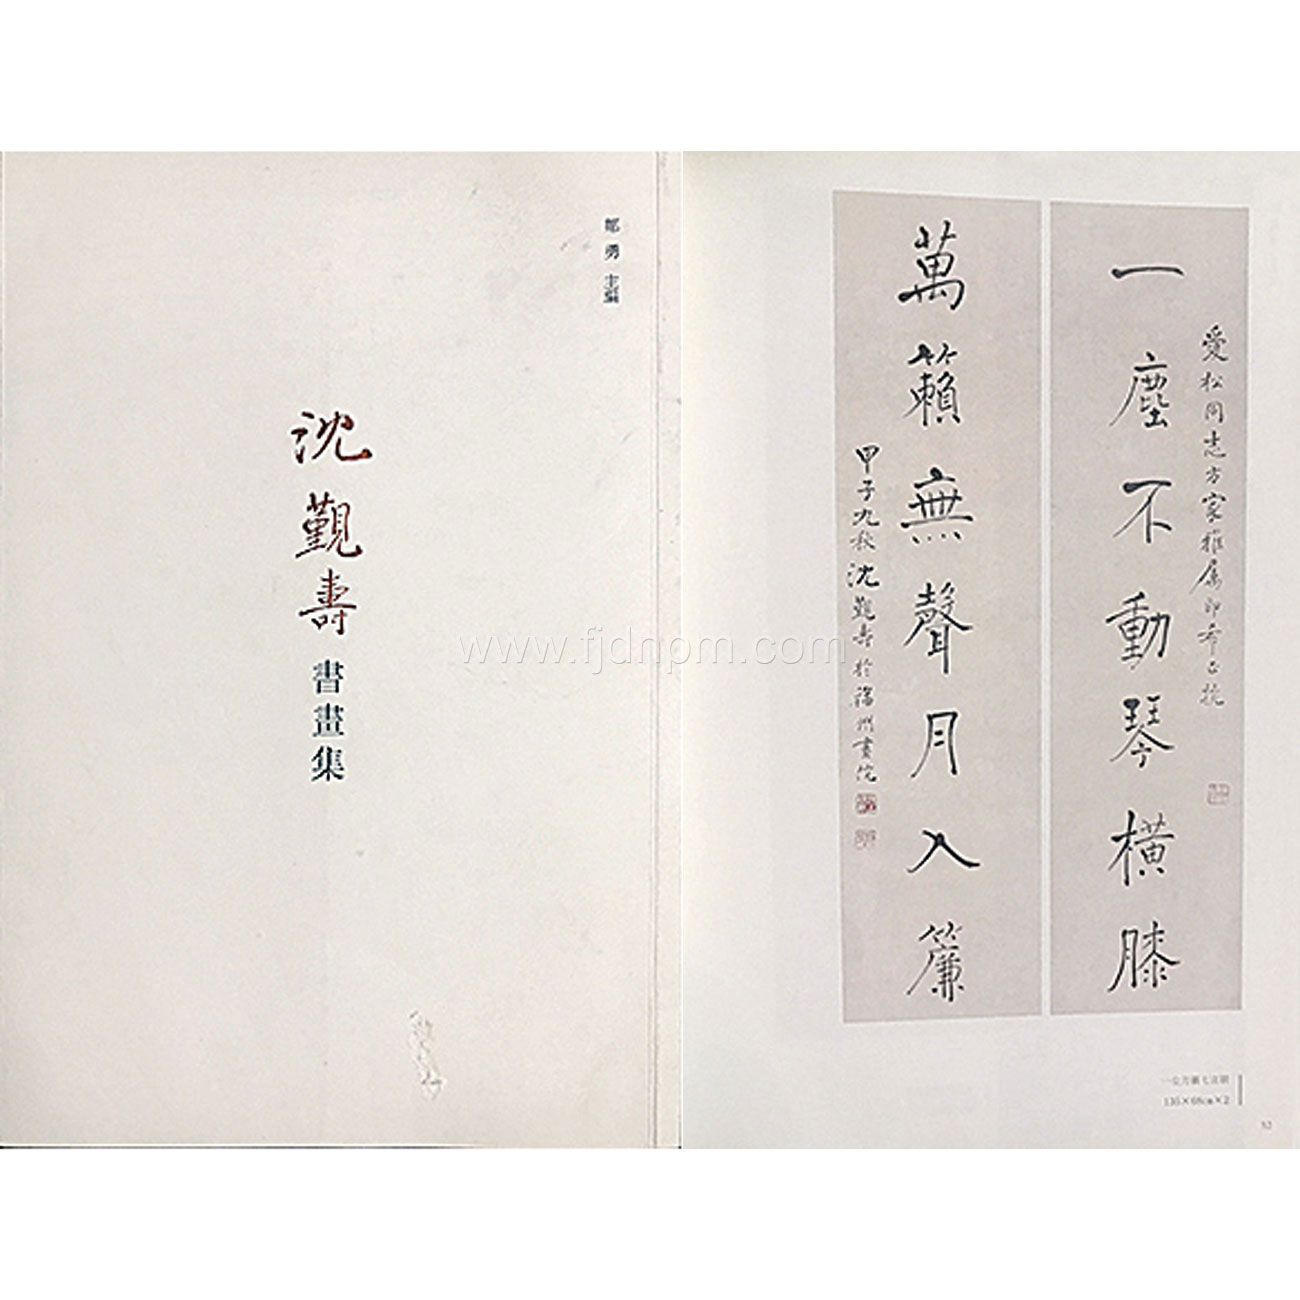 勇 主編
沈覲壽
書畫集
www.fjdnpm.com
愛松同志方家雅属即希正
一塵不動琴橫膝
萬籟無聲月入簾
甲子九秋沈覲壽於福州畫院
135×68cm×2
52